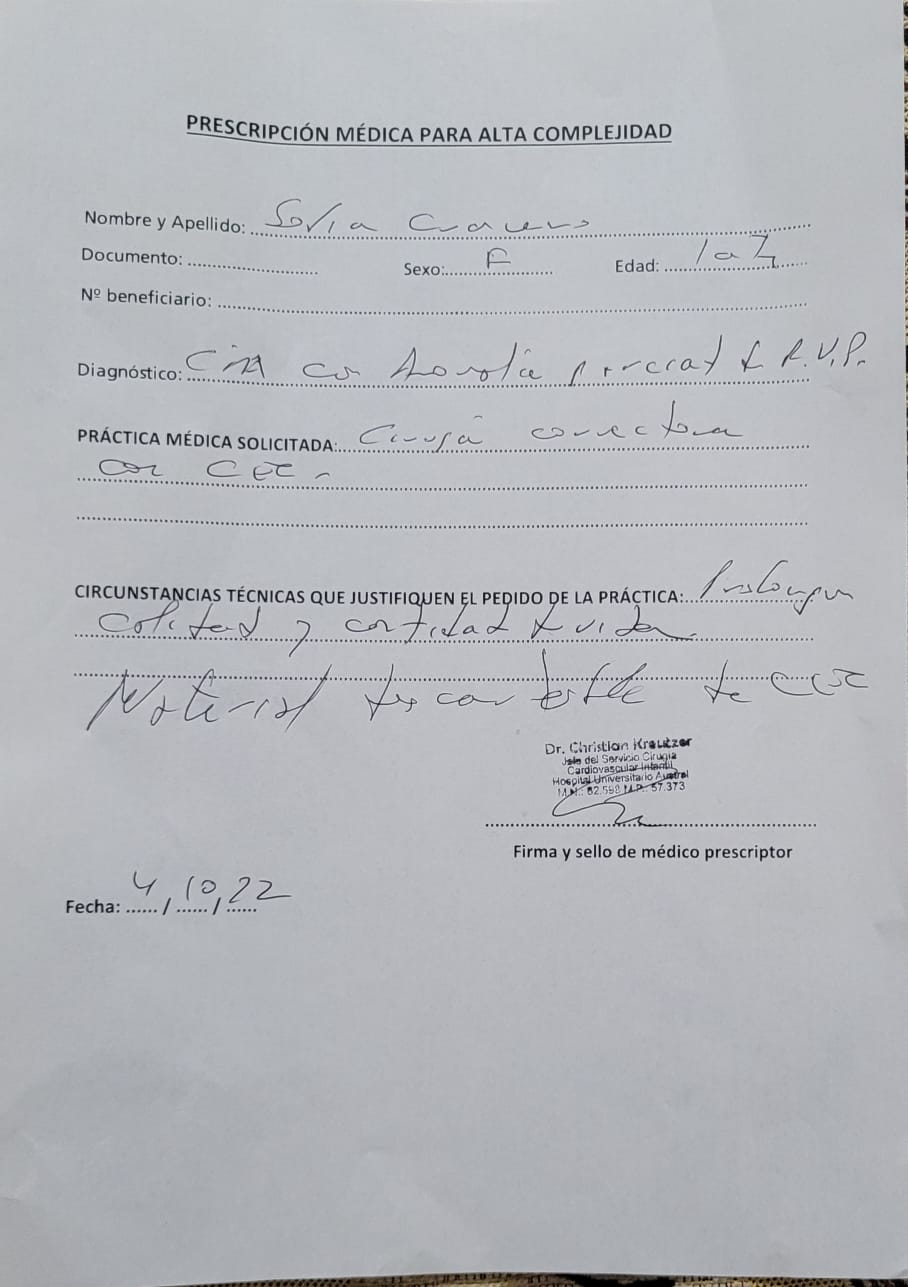 PRESCRIPCIÓN MÉDICA PARA ALTA COMPLEJIDAD
Nombre y Apellido: Sofia Cravero
Documento: Sexo: F Edad:
Nº beneficiario:
Diagnóstico: CIA con Anomalia parcial R.V.P.
PRÁCTICA MÉDICA SOLICITADA: Cirugía correctora
con CEC
CIRCUNSTANCIAS TÉCNICAS QUE JUSTIFIQUEN EL PEDIDO DE LA PRÁCTICA: Prolongar
calidad y cantidad de vida.
Material descartable de CEC
Dr. Christian Kreutzer
Jefe del Servicio Cirugía
Cardiovascular Infantil
Hospital Universitario Austral
M.N.: 82.598 M.P.: 57.373
Firma y sello de médico prescriptor
Fecha: 4 / 10 / 22